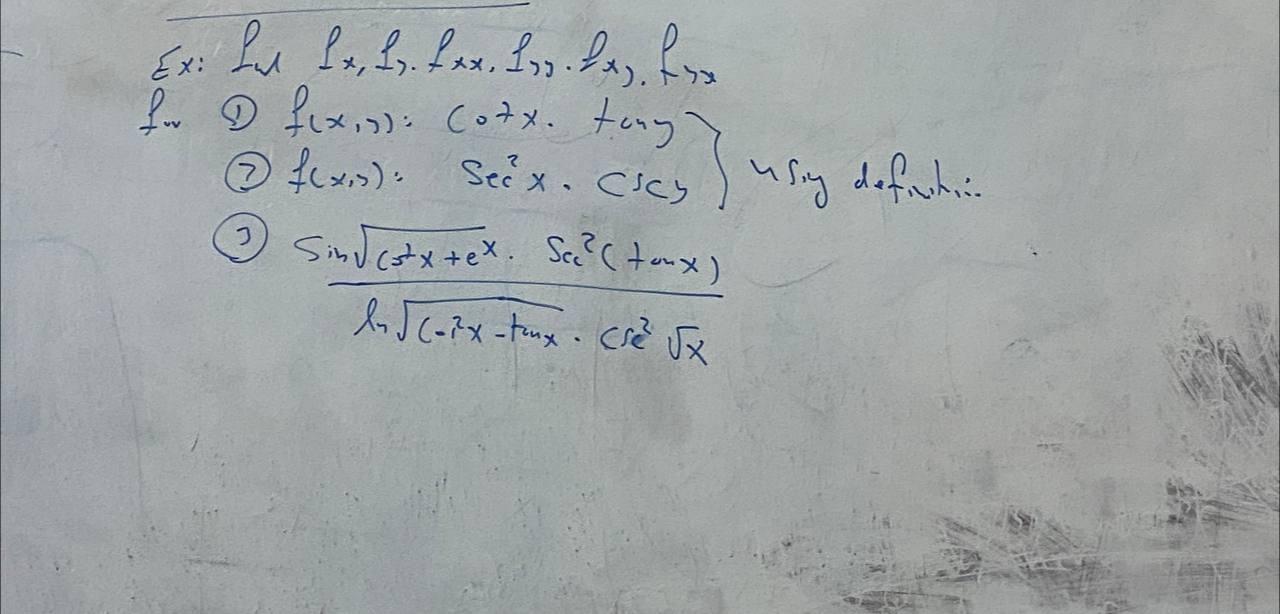 Ex: find fx, fy, fxx, fyy, fxy, fyx
for ① f(x,y): cotx. tany
② f(x,y): Sec²x. cscy } using definition
③ Sin√cotx+eˣ. Sec²(tanx)
ln√cot²x-tanx. csc²√x